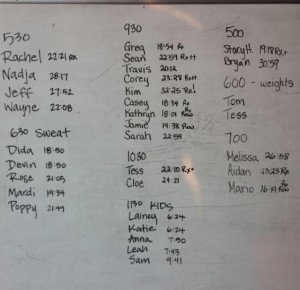 530
Rachel 22:21 RX
Nadja 28:17
Jeff 27:52
Wayne 22:08
630 Sweat
Dida 18:50
Devin 18:50
Rose 21:05
Mardi 19:34
Poppy
930
Greg 18:54 Rx
Sean 22:59 Rx+
Travis 20:12
Corey 23:28 Rx+
Kim 32:25 Rx
Casey 18:34 Rx
Kathryn 18:01 Row
Jamie 19:38 Row
Sarah 22:59
1030
Tess 22:10 Rx+
Cloe 24:21
1130 KIDS
Lainey 6:24
Katie 6:24
Anna 7:50
Leah 7:43
Sam 9:41
500
Story H. 19:18 Rx+
Bryan 30:59
600 - weights
Tom
Tess
700
Melissa 26:58
Aidan
Mario 16:19 Row